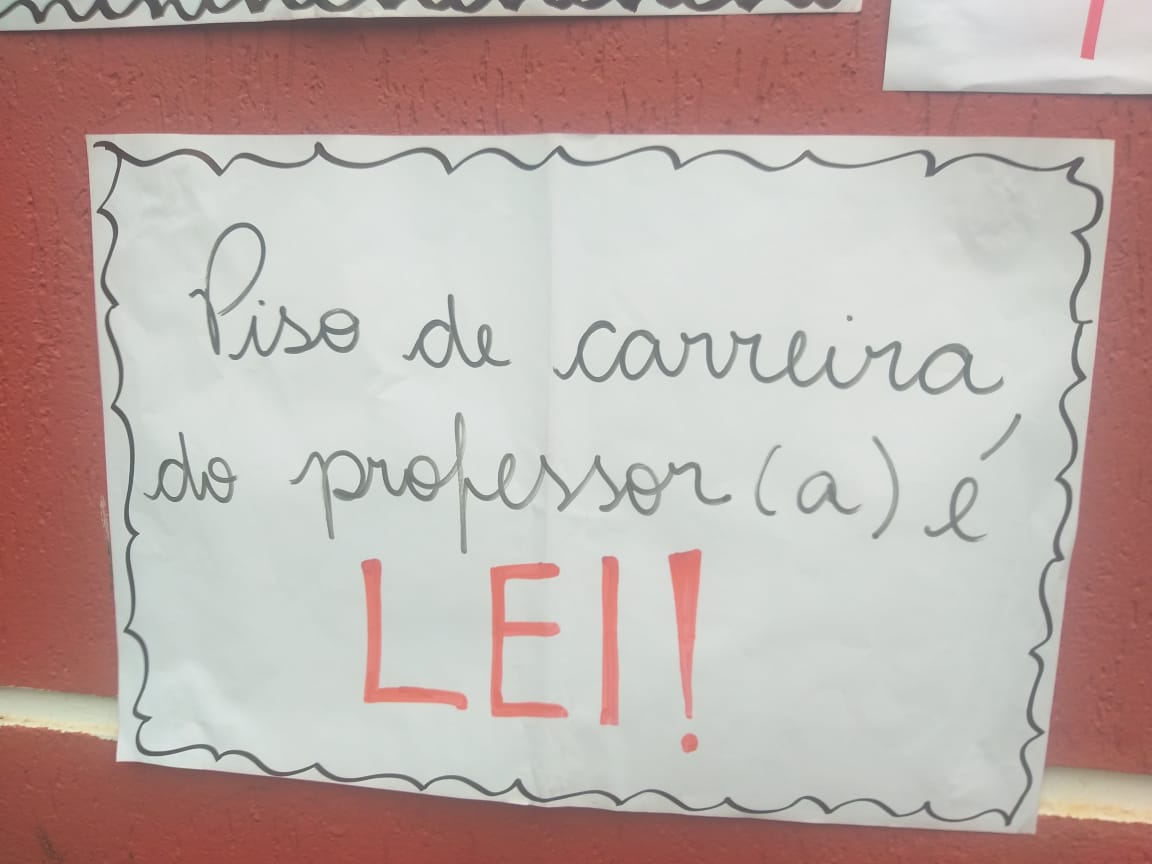 Piso de carreira
do professor(a) é
LEI!